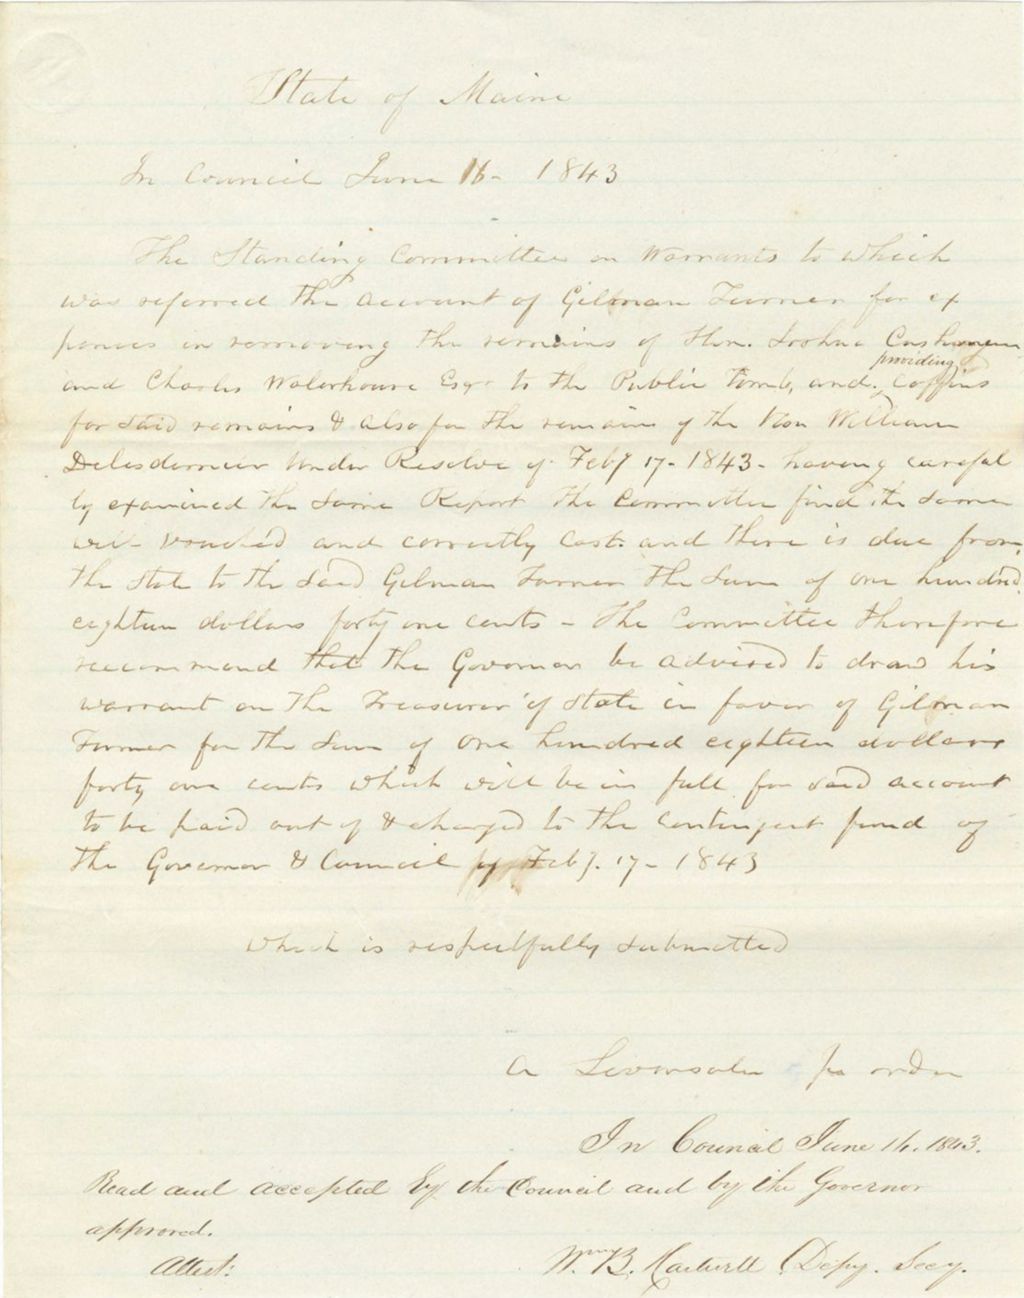 State of Maine
In Council June 16 - 1843
The Standing Committee on Warrants to which
was referred the account of Gilman Turner for ex
pences in removing the remains of Hon. Joshua Cushman
providing
and Charles Waterhouse Esqr to the Public Tomb, and coffins
for said remains & also for the remains of the Hon William
Delesdernier Under Resolve of Feby 17 - 1843 - having careful
ly examined the same Report the Committee find the same
well vouched and correctly cast and there is due from
the State to the said Gilman Turner the sum of one hundred
eighteen dollars forty one cents - The Committee therefore
recommend that the Governor be advised to draw his
warrant on the Treasurer of State in favor of Gilman
Turner for the sum of One hundred eighteen dollars
forty one cents which will be in full for said account
to be paid out of & charged to the contingent fund of
the Governor & Council of Feby. 17 - 1843
which is respectfully submitted
A Levensaler per order
In Council June 16. 1843.
Read and accepted by the Council and by the Governor
approved.
Attest:
Wm B. Hartwell Depy. Secy.